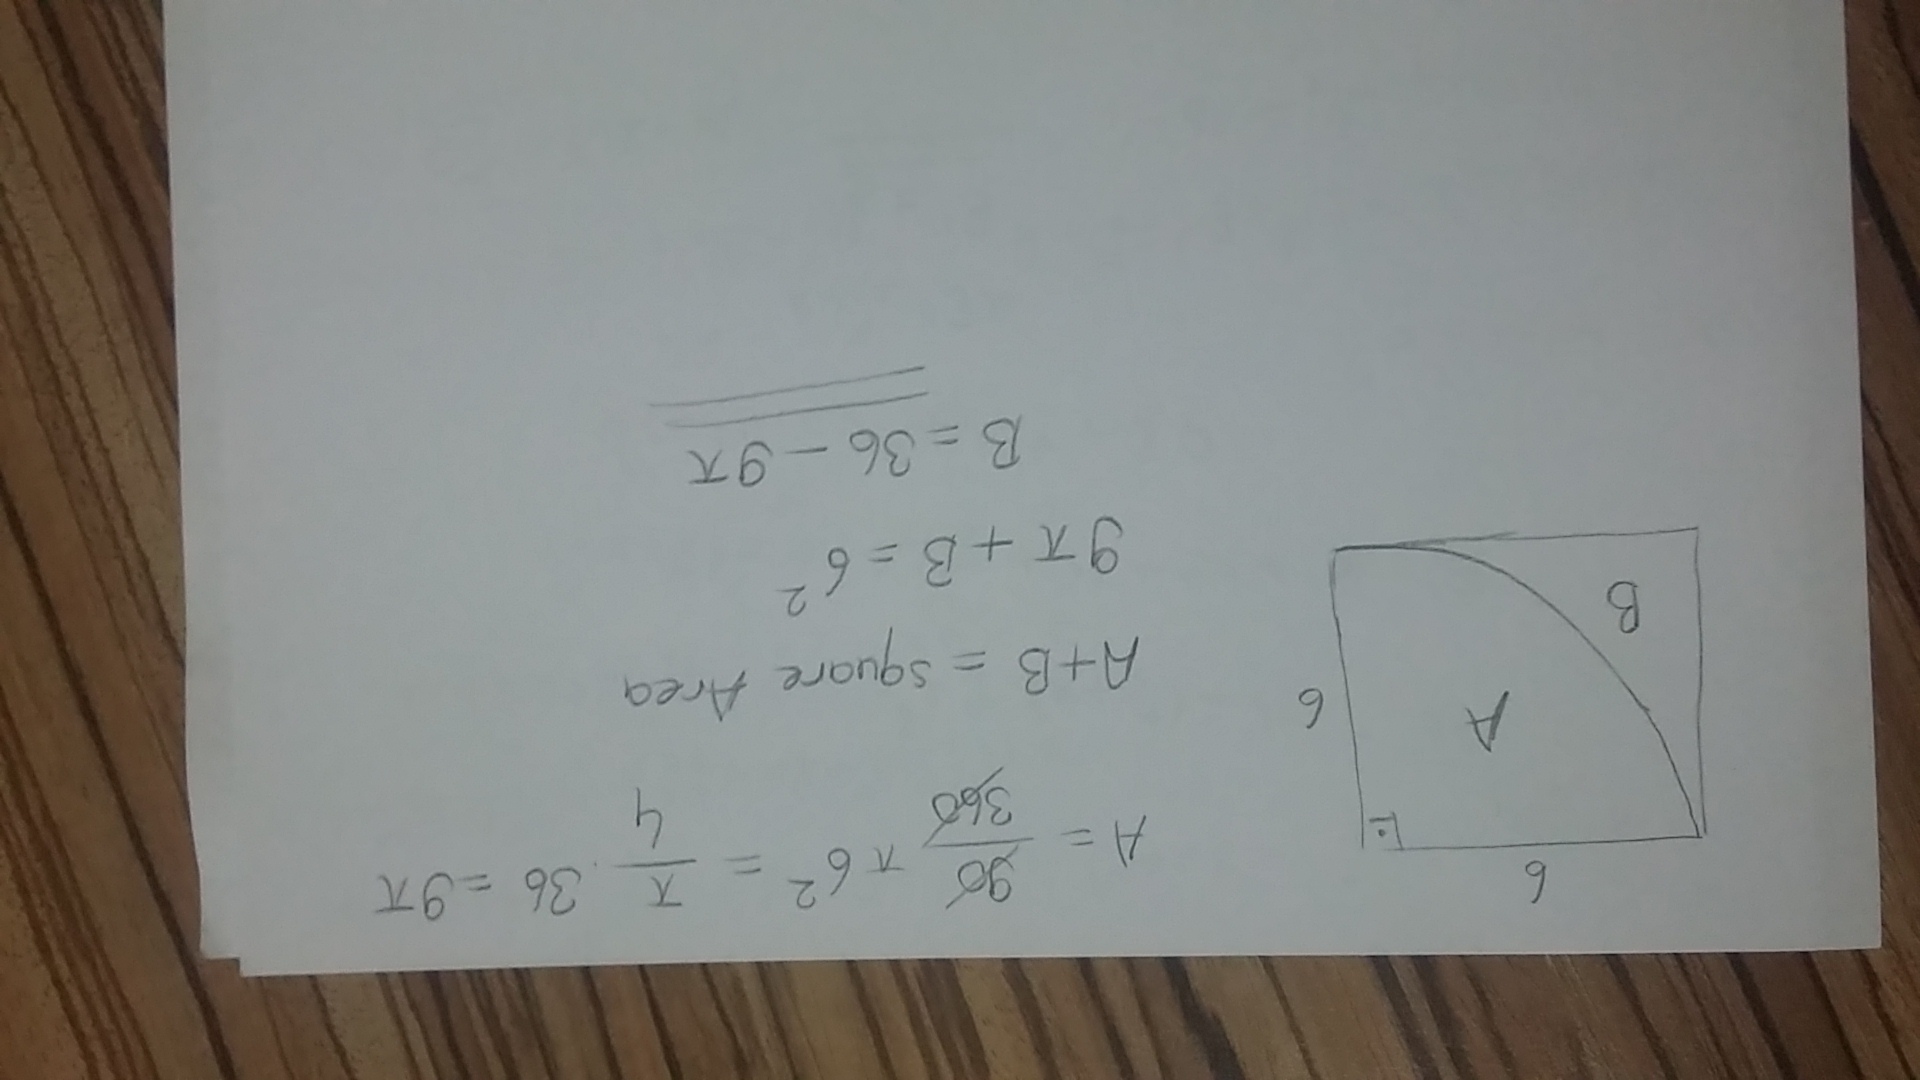 6
6
A
B
A = 90/360 π 6² = π/4 . 36 = 9π
A+B = square Area
9π + B = 6²
B = 36 - 9π